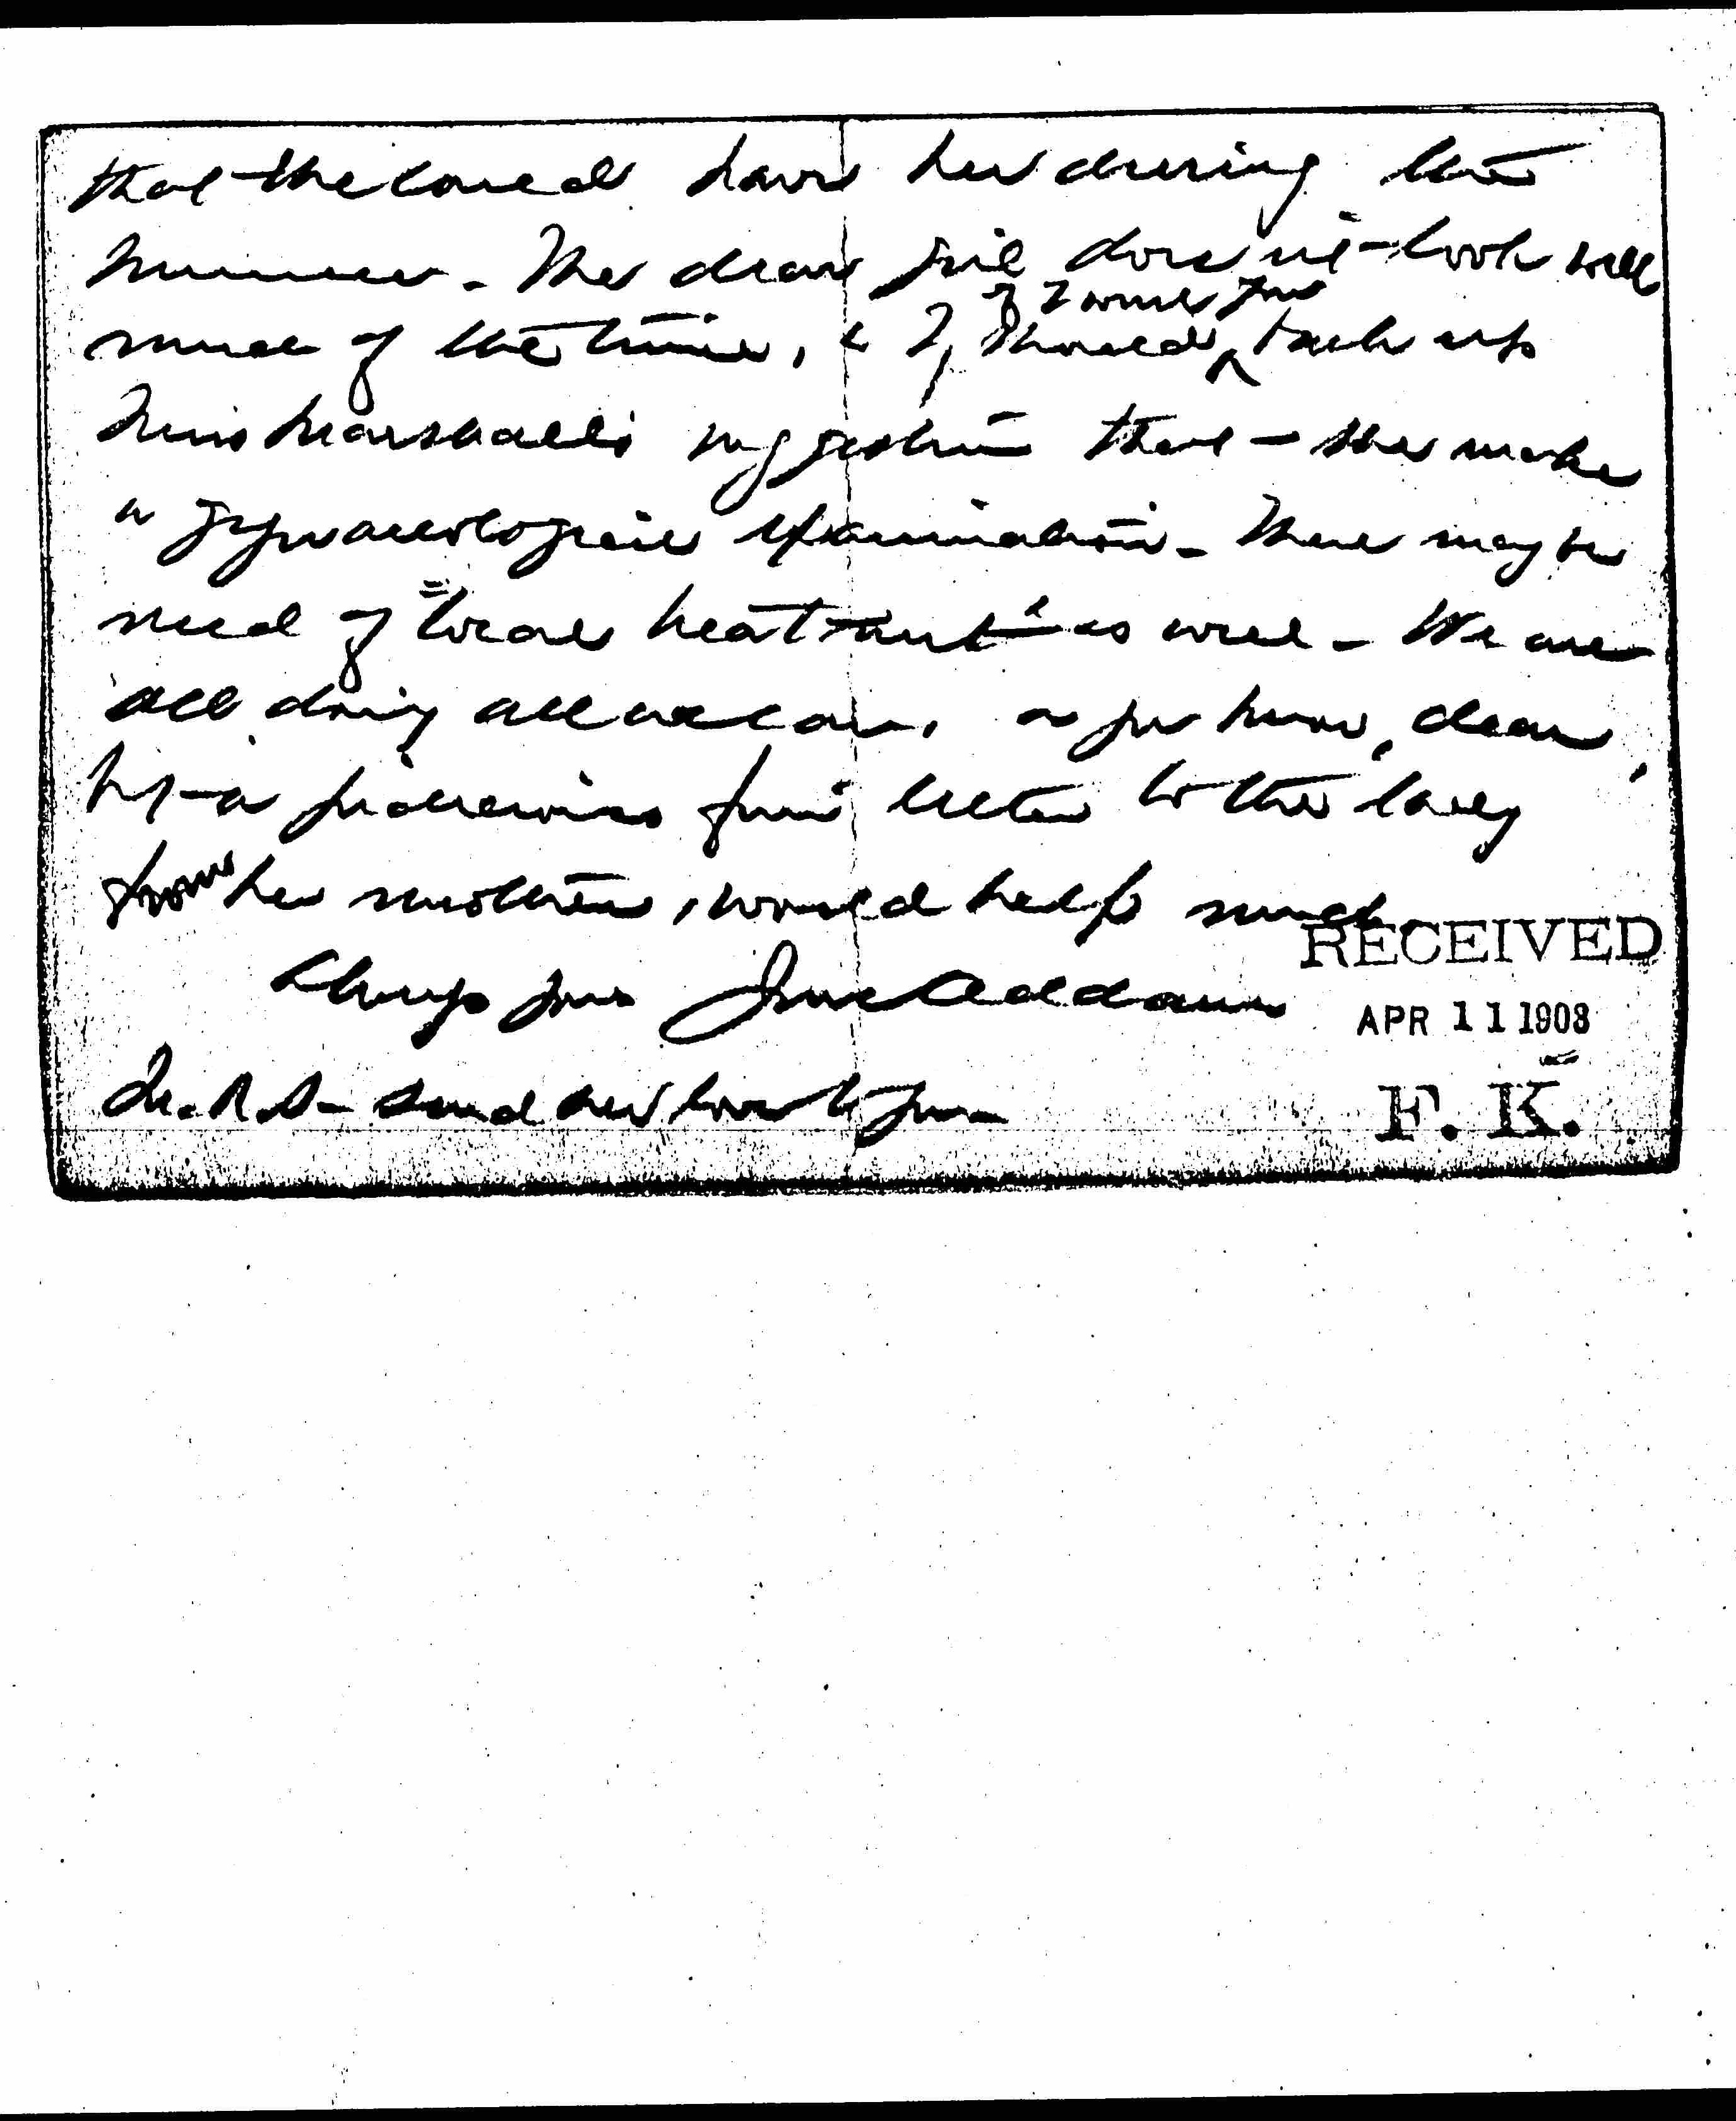 that she could have her during the
summer. The dear girl does not look well
much of the time, & I, should ^ back up
if I were you
Miss Marshall's suggestion that she make
a gynaecological examination. There may be
need of "local treatment" as well. We are
all doing all we can, dear,
but a letter to the lady
from her mother, would help much.
Always yours Jane Addams
send her love to you
RECEIVED
APR 11 1908
F. K.